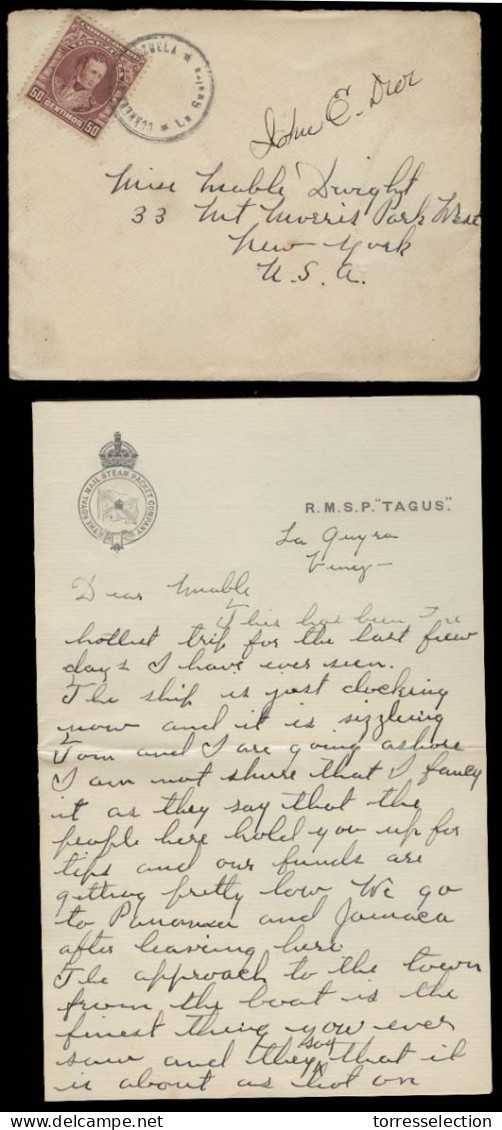 50 CENTIMOS 50
VENEZUELA
John E. Dwr
Miss Mable Dwight
33 Mt Morris Park West
New York
U.S.A.
THE ROYAL MAIL STEAM PACKET COMPANY
R.M.S.P. "TAGUS".
La Guyra
Venez-
Dear Mable
This has been the
hottest trip for the last few
days I have ever seen.
The ship is just docking
now and it is sizzling
Tom and I are going ashore
I am not shure that I fancy
it as they say that the
people here hold you up for
tips and our funds are
getting pretty low We go
to Panama and Jamaca
after leaving here
The approach to the town
from the boat is the
finest thing you ever
saw and they say that it
is about as hot on
torresselection